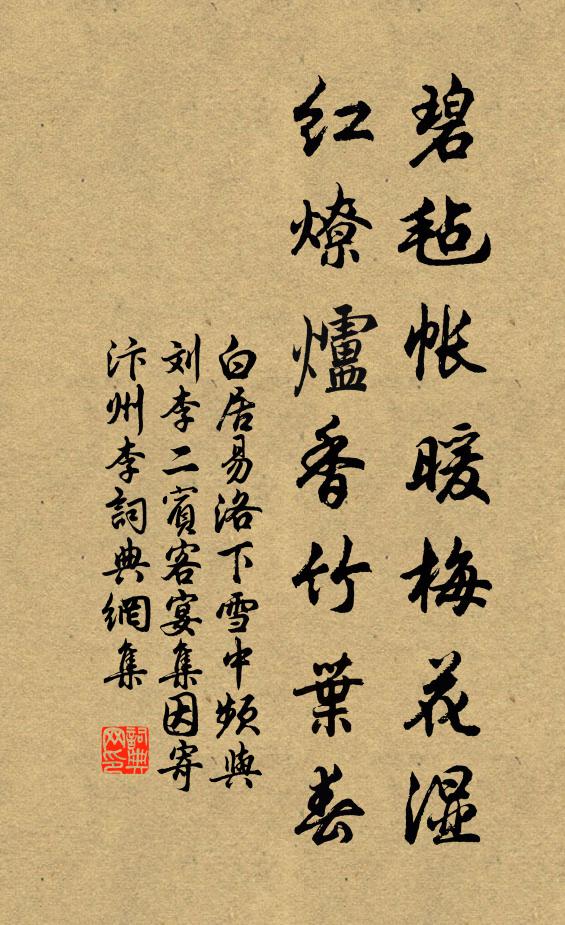 碧毡帐暖梅花湿
红燎爐香竹葉春
白居易洛下雪中频與
刘李二賓客宴集因寄
汴州李詞典網集
詞典网印